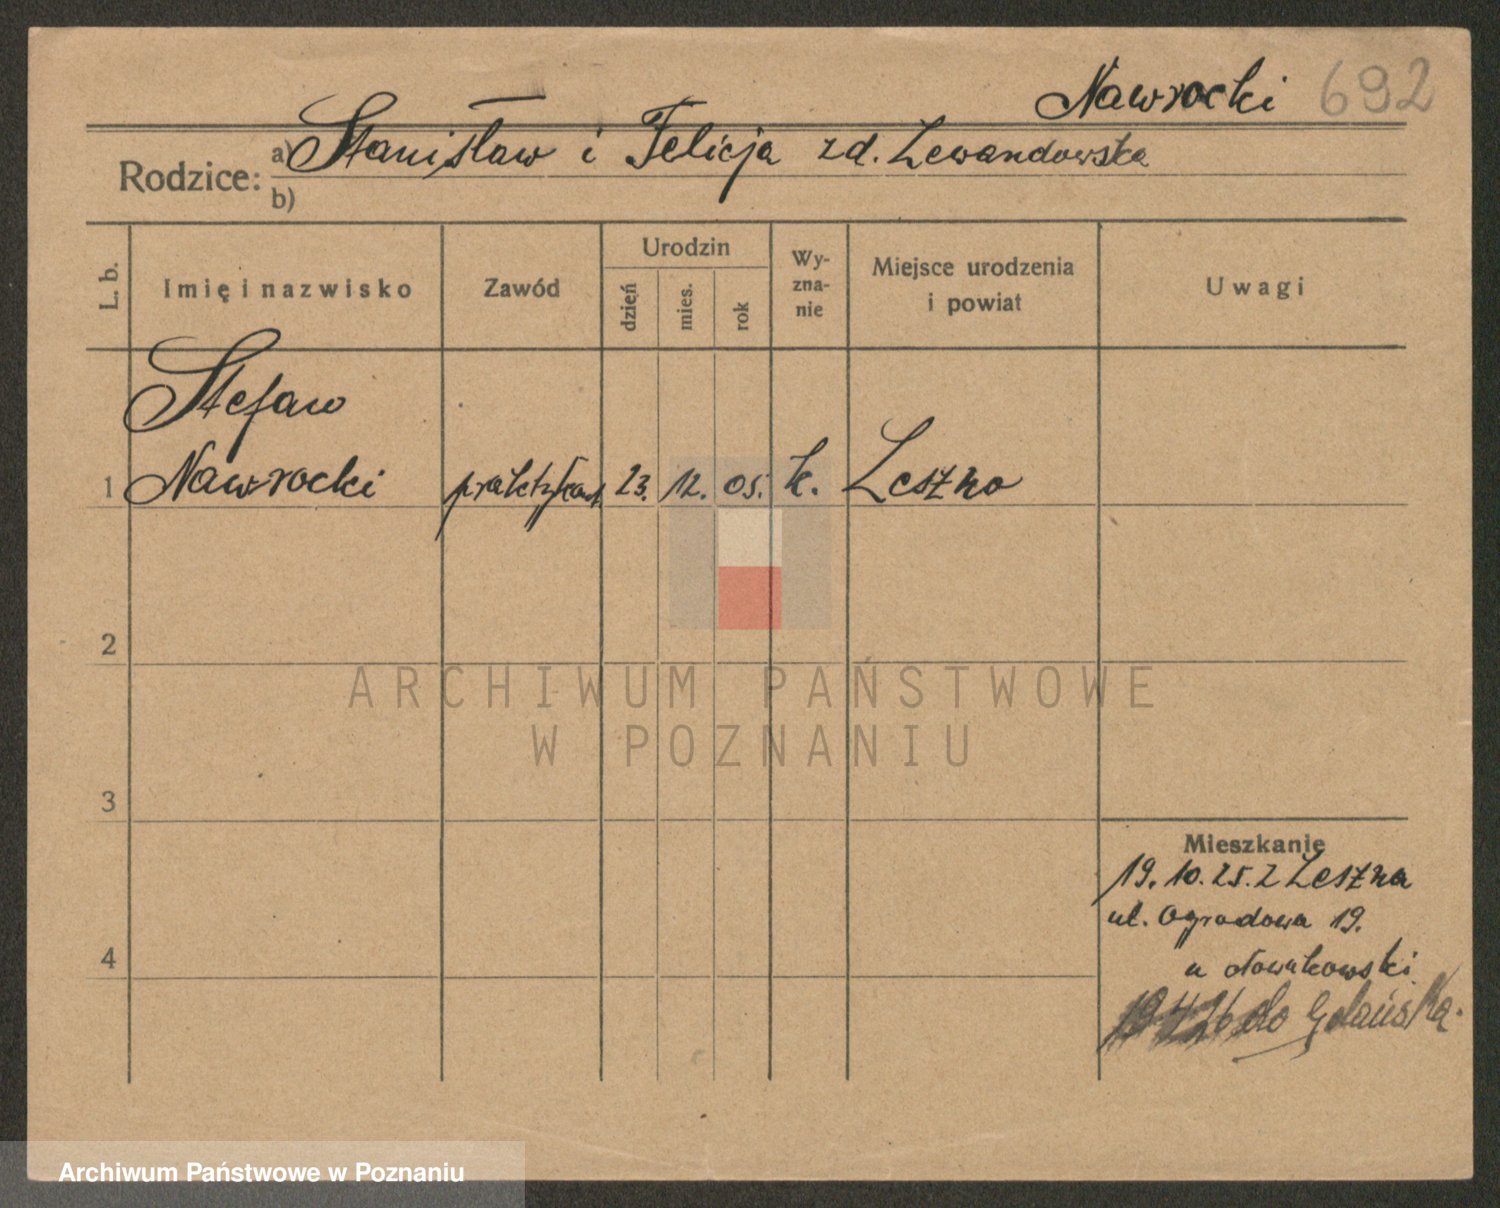 Nawrocki 692
Rodzice: a) Stanisław i Felicja zd. Lewandowska
b)
L. b.
Imię i nazwisko
Zawód
Urodzin
dzień
mies.
rok
Wy-
zna-
nie
Miejsce urodzenia
i powiat
Uwagi
Stefan
1 Nawrocki praktykant 23. 12. 05. k. Leszno
2
3
4
Mieszkanie
19. 10. 25. z Leszna
ul. Ogrodowa 19.
u Nowakowski
do Gdańska.
ARCHIWUM PAŃSTWOWE
W POZNANIU
Archiwum Państwowe w Poznaniu